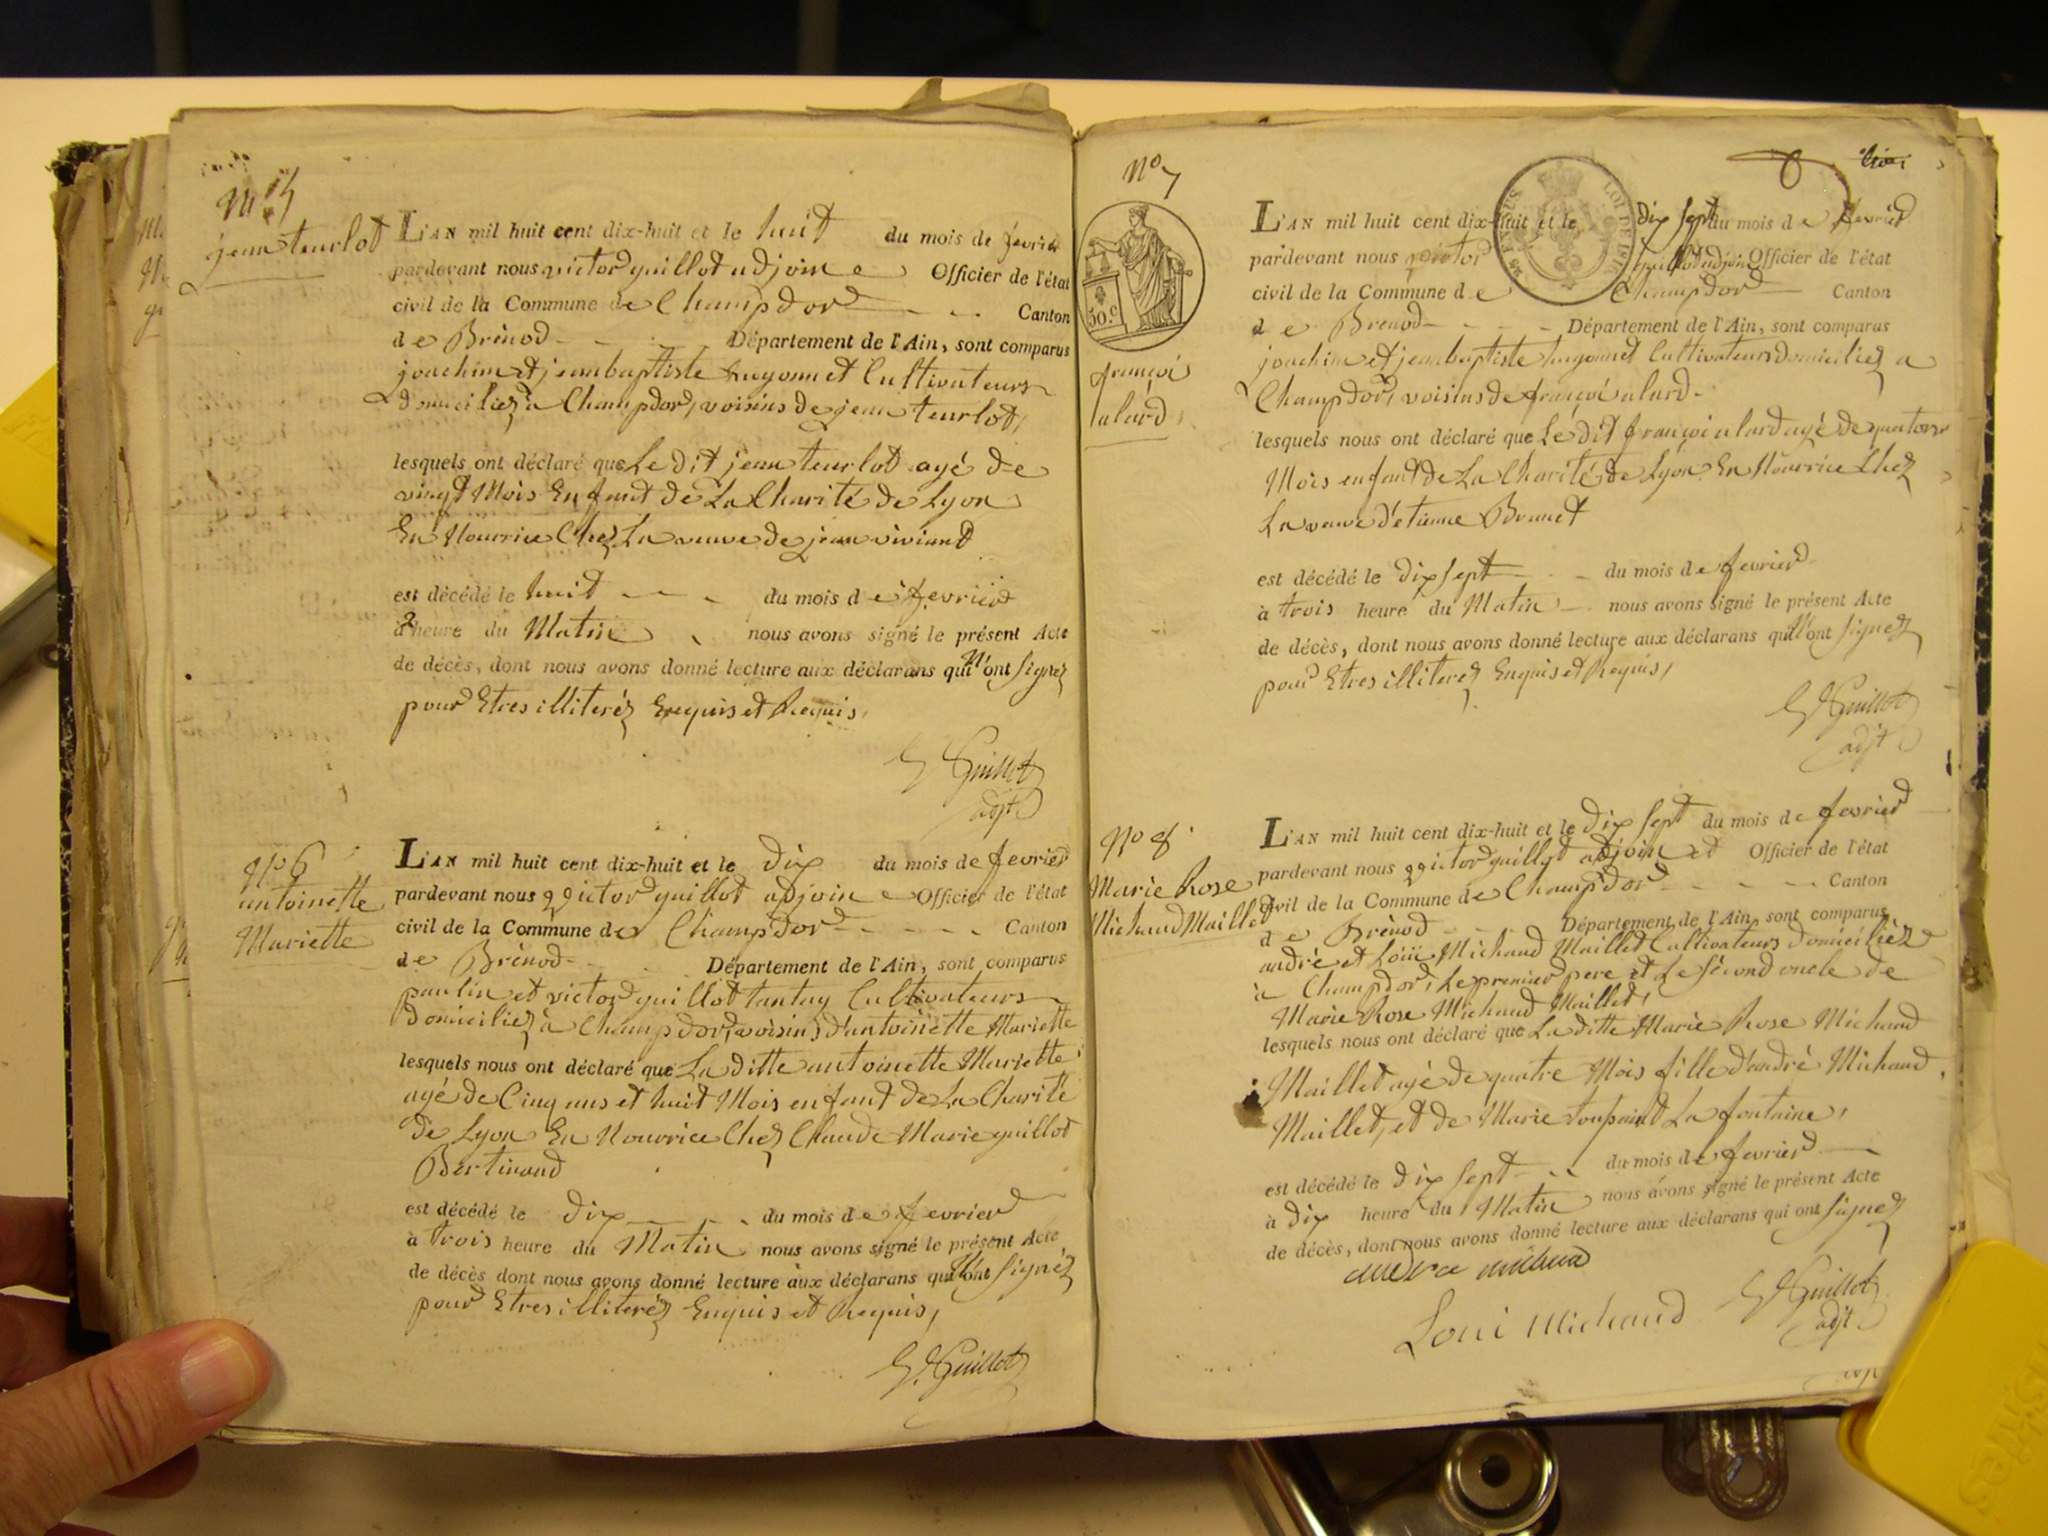 No 5
jean teurlot
L'AN mil huit cent dix-huit et le huit du mois de fevrier
pardevant nous victor guillot adjoin e Officier de l'état
civil de la Commune de Champdor Canton
de Brénod Département de l'Ain, sont comparus
joachim et jean baptiste cultivateurs
domiciliez a Champdor, voisins de jean teurlot,
lesquels ont déclaré que Le dit jean teurlot agé de
vingt Mois Enfant de La Charité de Lyon
En Nourrice Chez La veuve de jean viviand
est décédé le huit du mois de fevrier
à 2 heure du Matin nous avons signé le présent Acte
de décès, dont nous avons donné lecture aux déclarans qui n'ont signez
pour Etres illiterez Enquis et Requis,
Guillot
adjt
No 6
antoinette
Mariette
L'AN mil huit cent dix-huit et le dix du mois de fevrier
pardevant nous victor guillot adjoin e Officier de l'état
civil de la Commune de Champdor Canton
de Brénod Département de l'Ain, sont comparus
paulin et victor guillot tantay Cultivateurs
Domiciliez à Champdor, voisins d'antoinette Mariette
lesquels nous ont déclaré que La ditte antoinette Mariette
agé de Cinq ans et huit Mois enfant de La Charité
de Lyon En Nourrice Chez Claude Marie guillot
Bertinand
est décédé le dix du mois de fevrier
à trois heure du Matin nous avons signé le présent Acte
de décès dont nous avons donné lecture aux déclarans qui n'ont signéz
pour Etres illiteréz Enquis et Requis,
Guillot
No 7
50.c
françoi
alard
L'AN mil huit cent dix-huit et le dix sept du mois de fevrier
pardevant nous victor guillot adjoin Officier de l'état
civil de la Commune de Champdor Canton
de Brenod Département de l'Ain, sont comparus
joachim et jean baptiste cultivateurs domiciliez a
Champdor, voisins de françoi alard
lesquels nous ont déclaré que Le dit françoi alard agé de quatorze
Mois enfant de La Charité de Lyon En Nourrice Chez
La veuve d'etienne Brunet
est décédé le dix sept du mois de fevrier
à trois heure du Matin nous avons signé le présent Acte
de décès, dont nous avons donné lecture aux déclarans qui n'ont signez
pour Etres illiterez Enquis et Requis,
Guillot
adjt
No 8
Marie Rose
Michaud Maillet
L'AN mil huit cent dix-huit et le dix sept du mois de fevrier
pardevant nous victor guillot adjoin et Officier de l'état
civil de la Commune de Champdor Canton
de Brénod Département de l'Ain, sont comparus
andré et Loüi Michaud Maillet Cultivateurs domiciliéz
à Champdor, Le premier pere et Le sécond oncle de
Marie Rose Michaud Maillet,
lesquels nous ont déclaré que La ditte Marie Rose Michaud
Maillet agé de quatre Mois fille d'andré Michaud
Maillet, et de Marie toupaint La fontaine,
est décédé le dix sept du mois de fevrier
à dix heure du Matin nous avons signé le présent Acte
de décès, dont nous avons donné lecture aux déclarans qui ont signez
andre michaud
Loui Michaud
Guillot
adjt